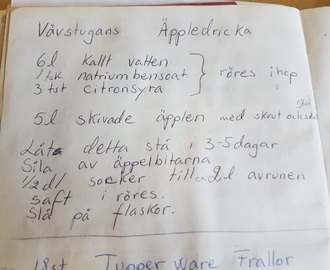 Vävstugans Äppledricka
6 l kallt vatten
1 tsk natriumbensoat } röres ihop
3 tsk citronsyra
5 l skivade äpplen med skrot och skal
Låta detta stå i 3-5 dagar
Sila av äppelbitarna
1/2 dl socker till 1 l avrunen
saft i röres.
Slå på flaskor.
18st Tupper Ware Frallor